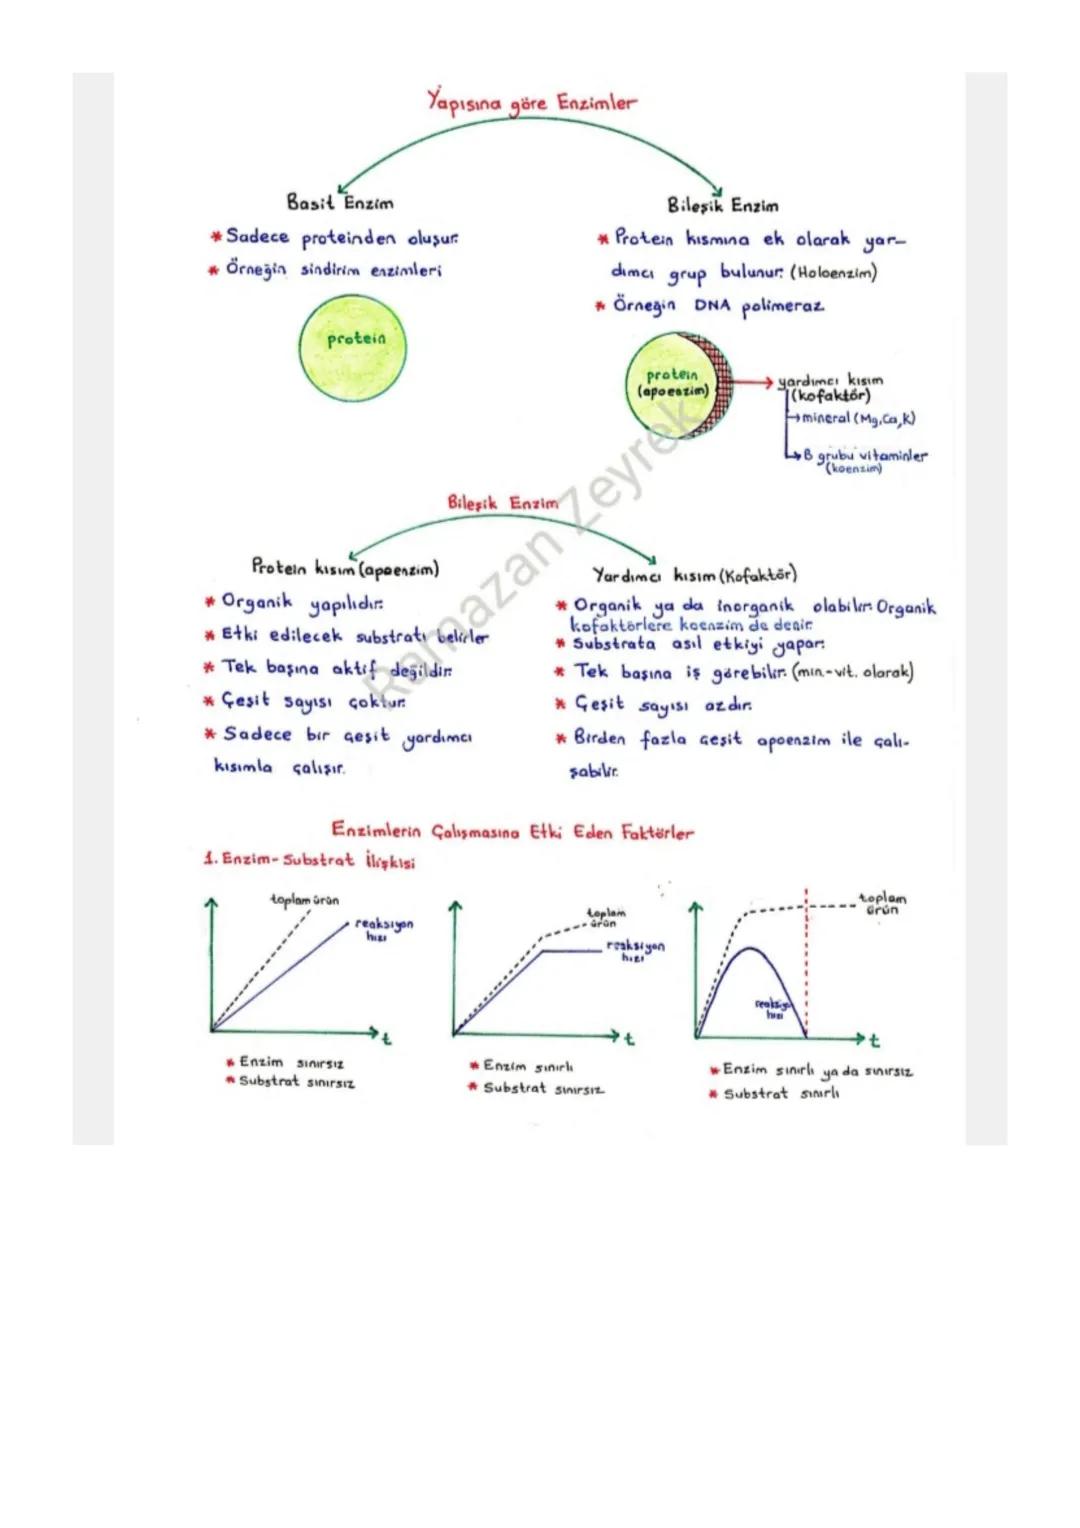 Yapısına göre Enzimler
Basit Enzim
* Sadece proteinden oluşur.
* Örneğin sindirim enzimleri
protein
Bileşik Enzim
* Protein kısmına ek olarak yar-
dımcı grup bulunur. (Holoenzim)
* Örneğin DNA polimeraz
protein
(apoenzim)
yardımcı kısım
(kofaktör)
mineral (Mg,Ca,K)
B grubu vitaminler
(koenzim)
Bileşik Enzim
Protein kısım (apoenzim)
* Organik yapılıdır.
* Etki edilecek substratı belirler
* Tek başına aktif değildir.
* Çeşit sayısı çoktur.
* Sadece bir çeşit yardımcı
kısımla çalışır.
Yardımcı kısım (Kofaktör)
* Organik ya da inorganik olabilir. Organik
kofaktörlere koenzim de denir.
* Substrata asıl etkiyi yapar.
* Tek başına iş görebilir. (min.-vit. olarak)
* Çeşit sayısı azdır.
* Birden fazla çeşit apoenzim ile çalı-
şabilir.
Ramazan Zeyrek
Enzimlerin Çalışmasına Etki Eden Faktörler
1. Enzim-Substrat İlişkisi
toplam ürün
reaksiyon
hızı
t
* Enzim sınırsız
* Substrat sınırsız
toplam
ürün
reaksiyon
hızı
t
* Enzim sınırlı
* Substrat sınırsız
toplam
ürün
reaksiyo
hızı
t
* Enzim sınırlı ya da sınırsız
* Substrat sınırlı